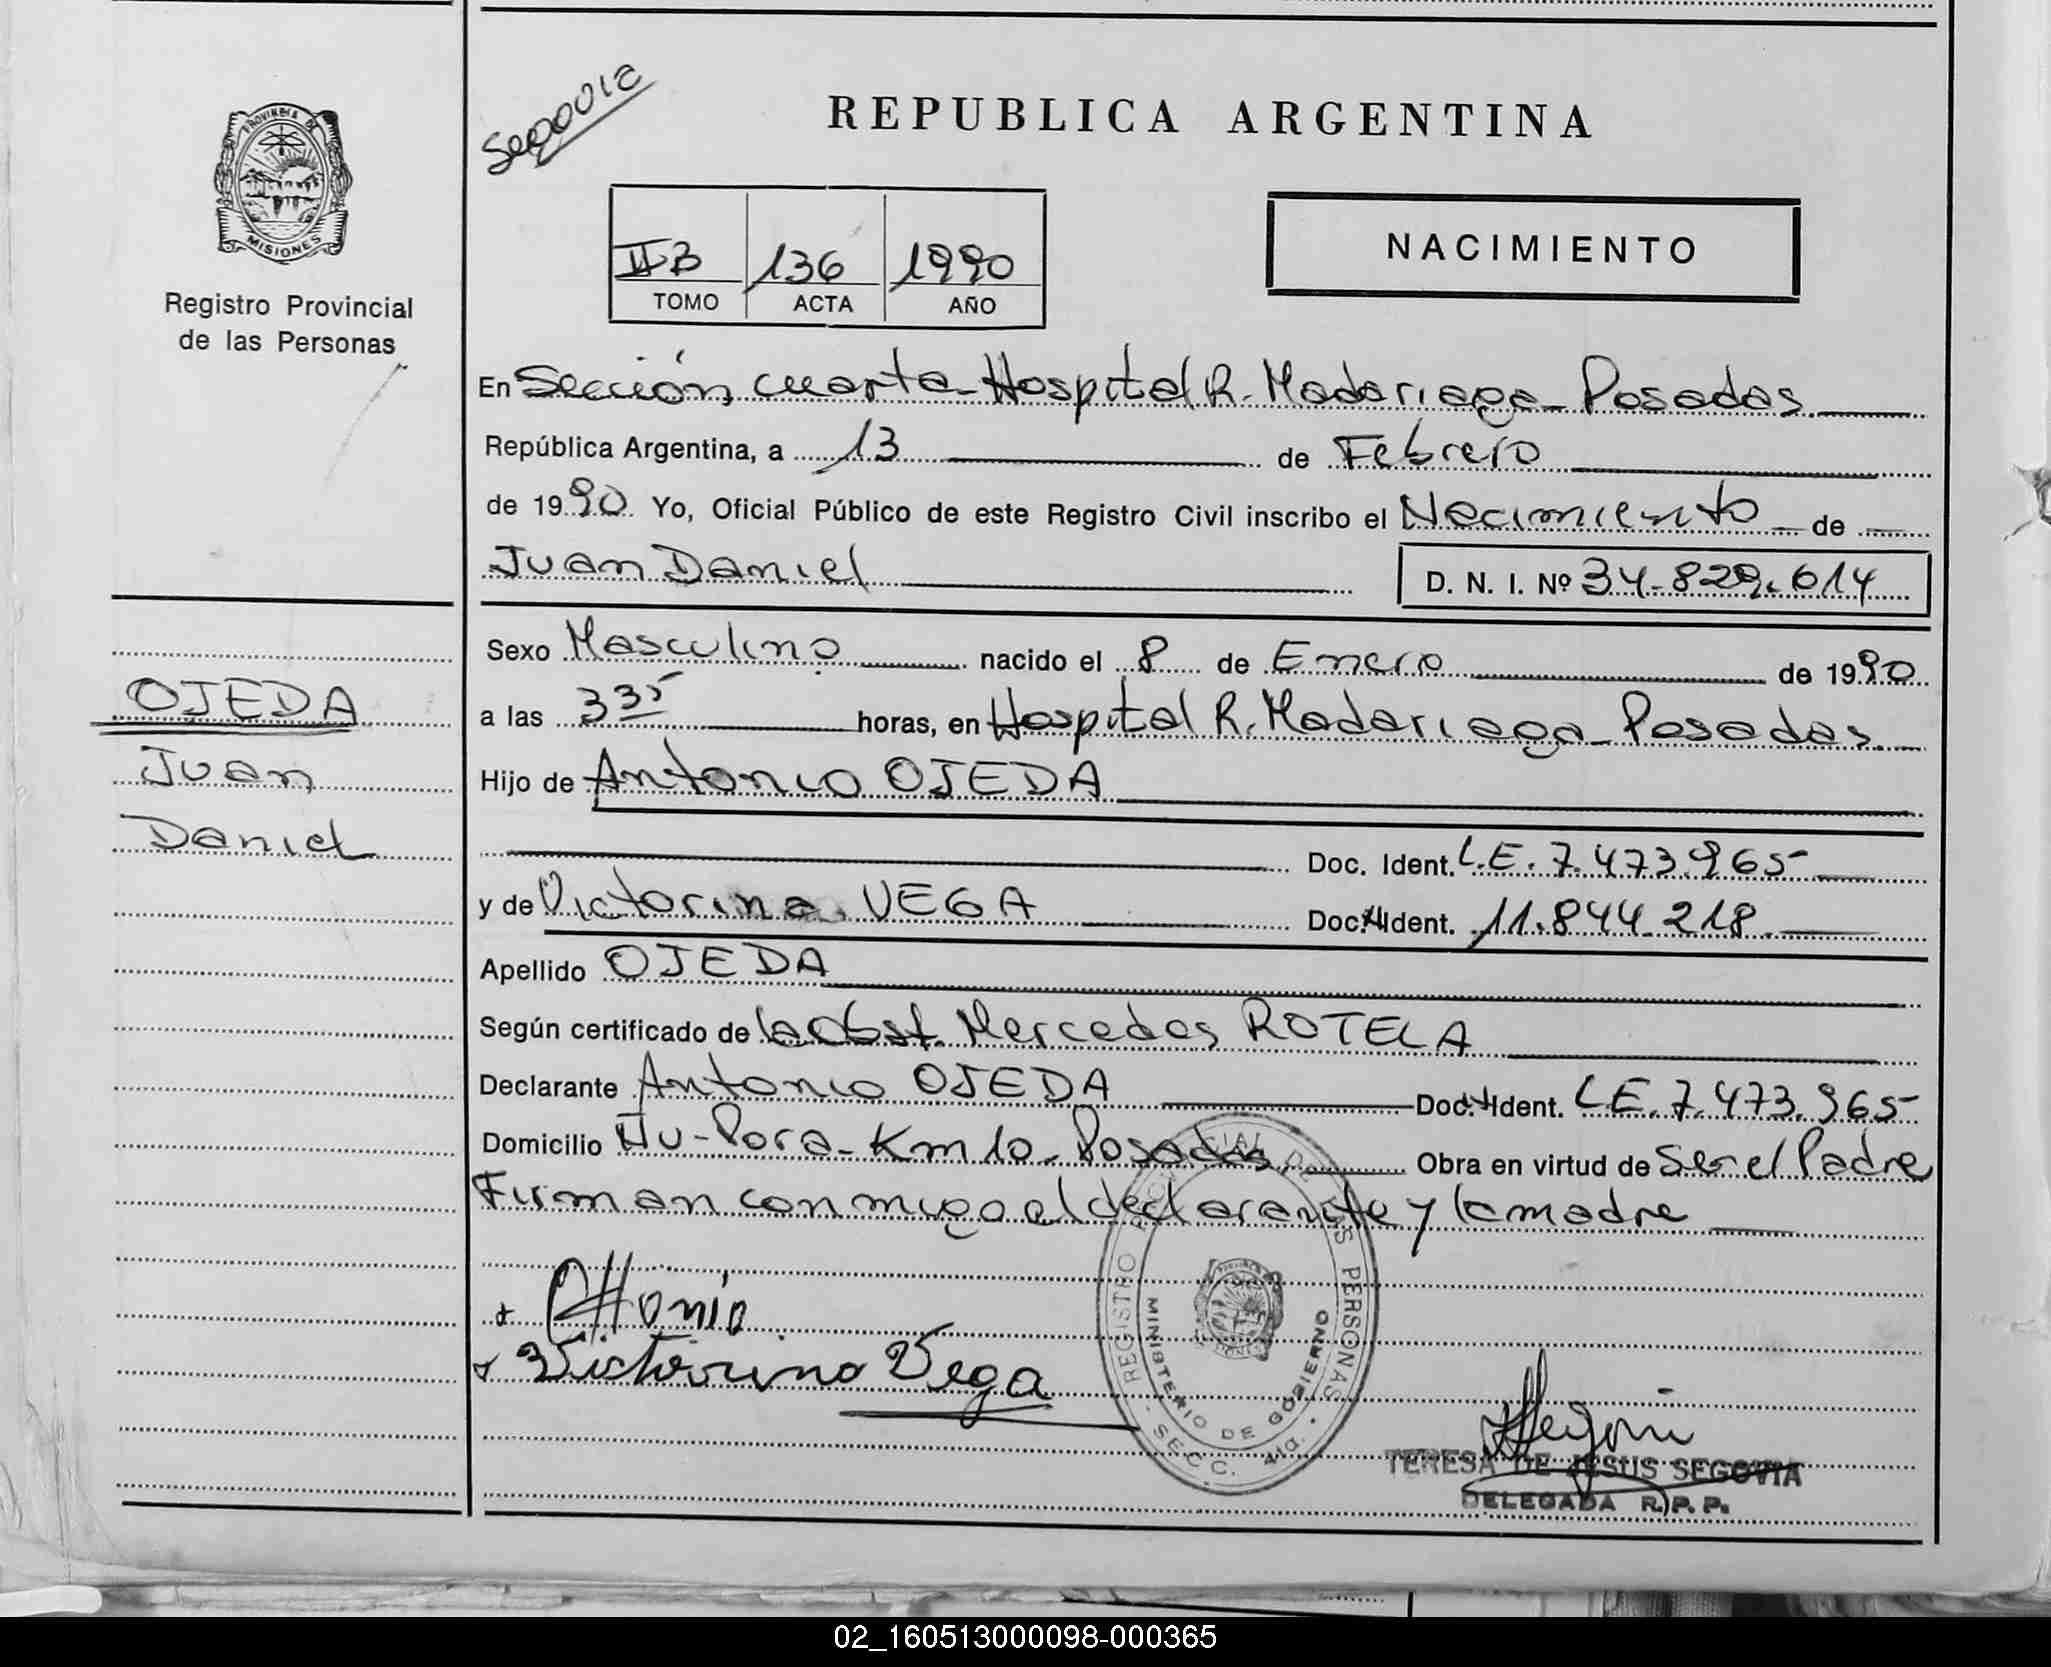 PROVINCIA DE
MISIONES
Registro Provincial
de las Personas
REPUBLICA ARGENTINA
NACIMIENTO
IIB 136 1990
TOMO ACTA AÑO
En Sección cuarta - Hospital R. Madariaga - Posadas
República Argentina, a 13 de Febrero
de 1990 Yo, Oficial Público de este Registro Civil inscribo el Nacimiento de
Juan Daniel D. N. I. Nº 34.829.614
Sexo Masculino nacido el 8 de Enero de 1990
a las 3 35 horas, en Hospital R. Madariaga - Posadas
Hijo de Antonio OJEDA
Doc. Ident. L.E. 7.473.965
y de Victorina VEGA Doc. Ident. 11.844.218
Apellido OJEDA
Según certificado de la Obst. Mercedes ROTELA
Declarante Antonio OJEDA Doc. Ident. L.E. 7.473.965
Domicilio Itu-Pora - Km 10 - Posadas Obra en virtud de Ser el Padre
Firman conmigo el declarante y la madre
OJEDA
Juan
Daniel
Victorina Vega
REGISTRO PROVINCIAL DE LAS PERSONAS
MINISTERIO DE GOBIERNO
SECC. 4ta.
TERESA DE JESUS SEGOVIA
DELEGADA R.P.P.
02_160513000098-000365